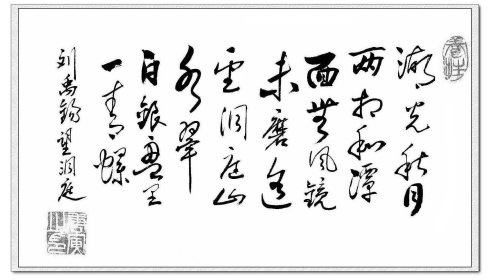 湖光秋月
两相和潭
面無风镜
未磨遥
望洞庭山
水翠
白银盘里
一青螺
刘禹锡望洞庭